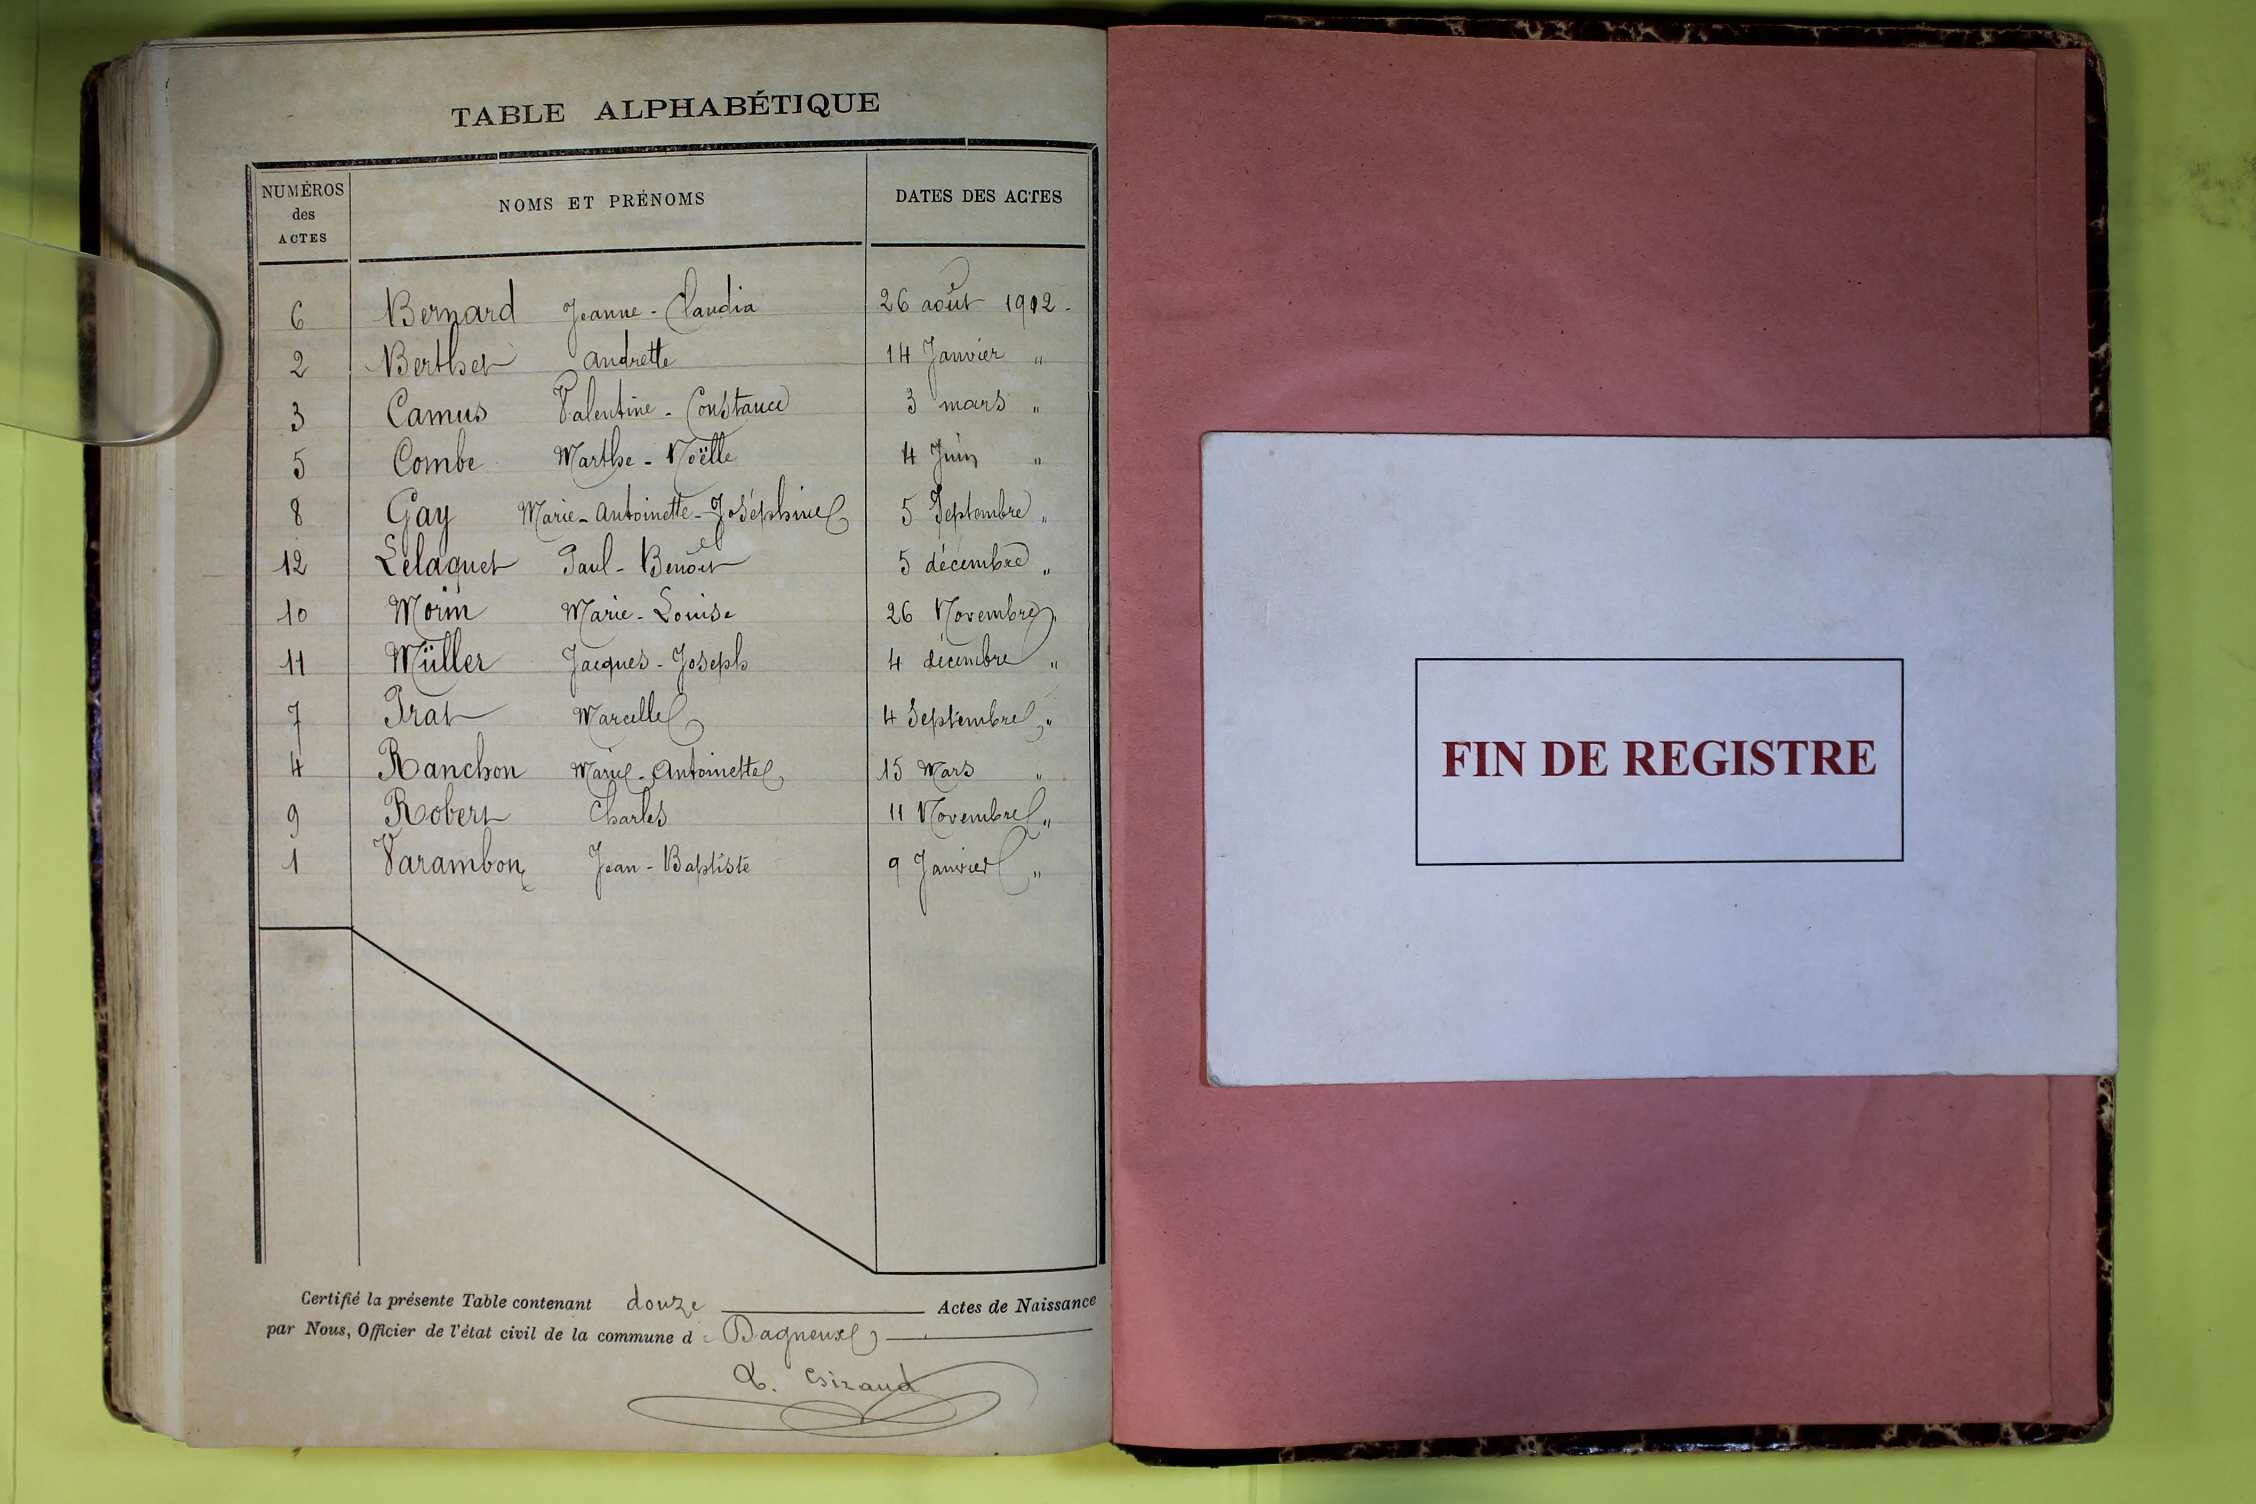 TABLE ALPHABÉTIQUE
NUMÉROS des ACTES NOMS ET PRÉNOMS DATES DES ACTES
6 Bernard Jeanne - Claudia 26 août 1912 -
2 Berthet Andrette 14 Janvier "
3 Camus Valentine - Constance 3 mars "
5 Combe Marthe - Noëlle 4 Juin "
8 Gay Marie - Antoinette - Joséphine 5 Septembre "
12 Lelaquet Paul - Benoît 5 décembre "
10 Morin Marie - Louise 26 Novembre "
11 Müller Jacques - Joseph 4 décembre "
7 Prat Marcelle 4 Septembre "
4 Ranchon Marie - Antoinette 15 Mars "
9 Robert Charles 11 Novembre "
1 Varambon Jean - Baptiste 9 Janvier "
Certifié la présente Table contenant douze Actes de Naissance
par Nous, Officier de l'état civil de la commune de Dagneux
FIN DE REGISTRE